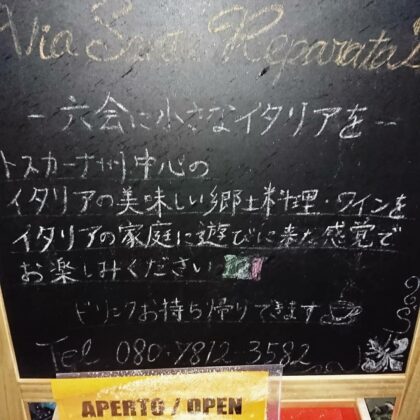 Via Santa Reparata
- 六会に小さなイタリアを -
トスカーナ州中心の
イタリアの美味しい郷土料理・ワインを
イタリアの家庭に遊びに来た感覚で
お楽しみください
ドリンクお持ち帰りできます
Tel 080-7812-3582
APERTO / OPEN